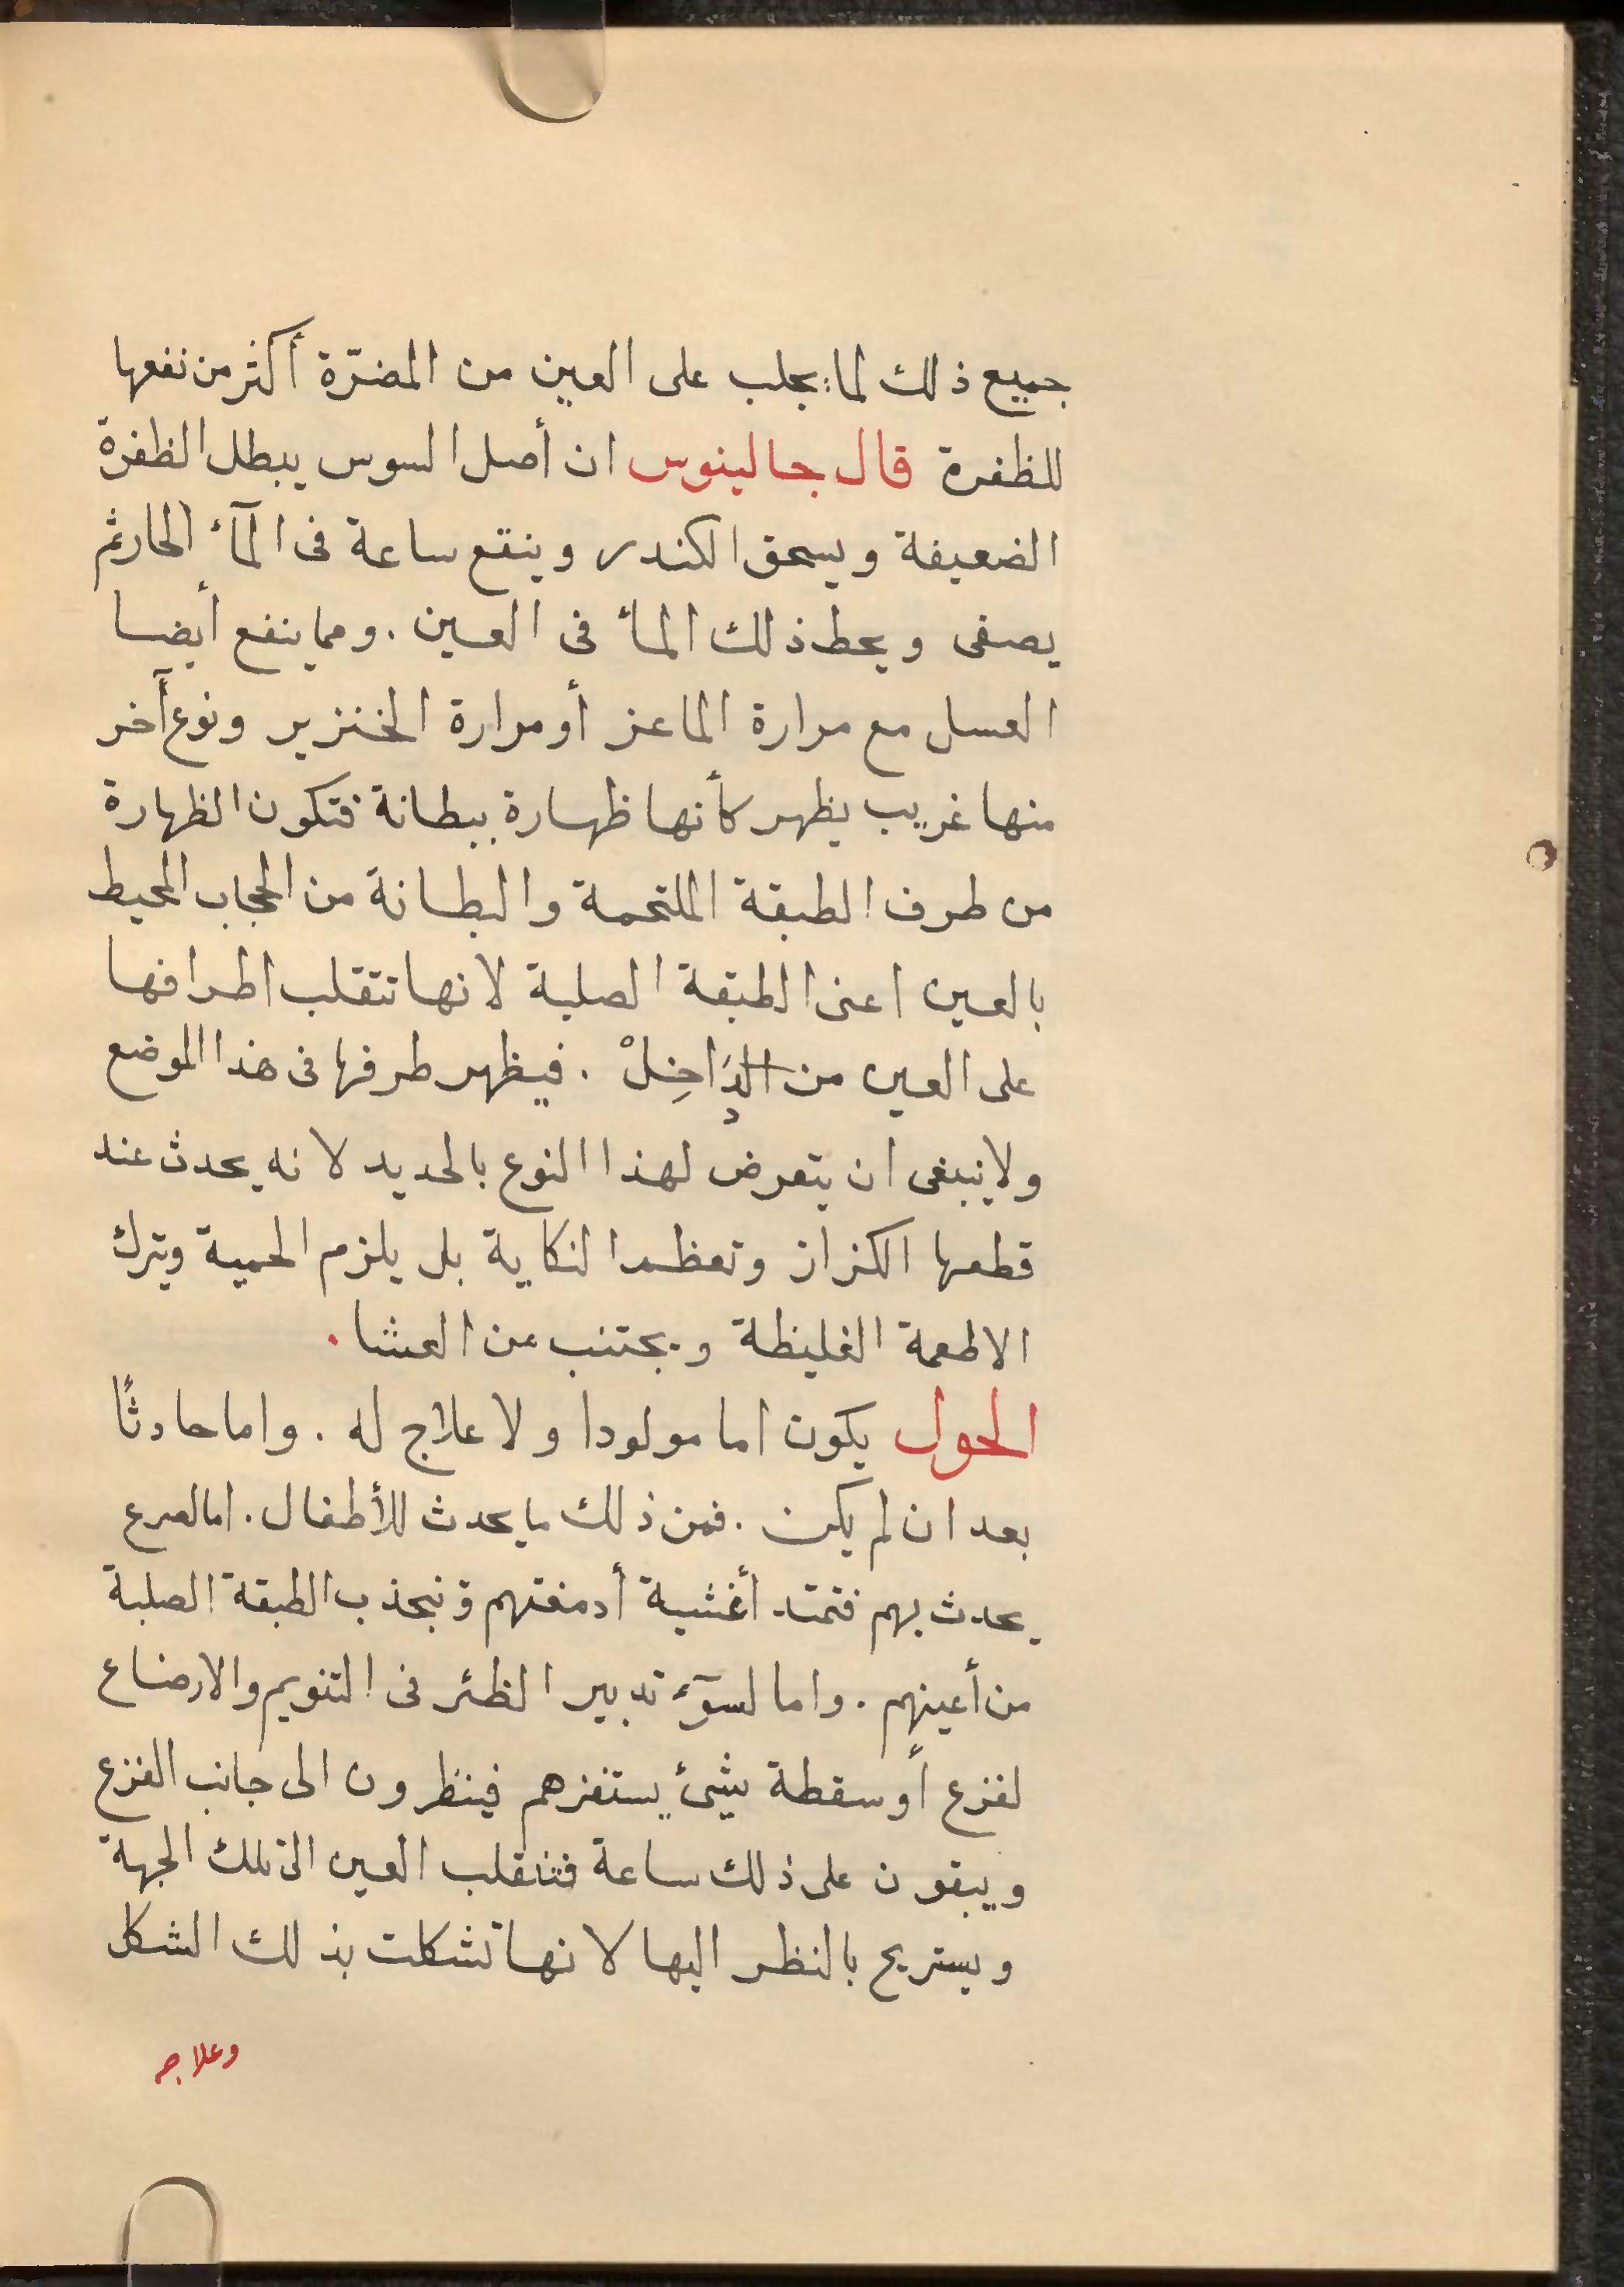 جميع ذلك لما يجلب على العين من المضرّة أكثر من نفعها
للظفرة قال جالينوس ان أصل السوس يبطل الظفرة
الضعيفة ويسحق الكندر وينقع ساعة فى المآء الحار ثم
يصفى ويحط ذلك الماء فى العين . ومما ينفع أيضا
العسل مع مرارة الماعز أو مرارة الخنزير ونوع آخر
منها غريب يظهر كأنها ظهارة ببطانة فتكون الظهارة
من طرف الطبقة الملتحمة والبطانة من الحجاب المحيط
بالعين اعنى الطبقة الصلبة لانها تتقلب اطرافها
على العين من الدَاخِلْ . فيظهر طرفها فى هذا الموضع
ولا ينبغى ان يتعرض لهذا النوع بالحديد لانه يحدث عند
قطعها الكزاز وتعظم النكاية بل يلزم الحمية ويترك
الاطعمة الغليظة ويجتنب عن العشا .
الحول يكون اما مولودا ولا علاج له . واما حادثًا
بعد ان لم يكن . فمن ذلك ما يحدث للأطفال . اما لصرع
يحدث بهم فتمتد أغشية أدمغتهم وتنجذب الطبقة الصلبة
من أعينهم . واما لسوٓء تدبير الظئر فى التنويم والارضاع
لفزع أو سقطة بشئ يستفزهم فينظرون الى جانب الفزع
ويبقون على ذلك ساعة فتنقلب العين الى تلك الجهة
ويستريح بالنظر اليها لانها تشكلت بذلك الشكل
وعلاجه